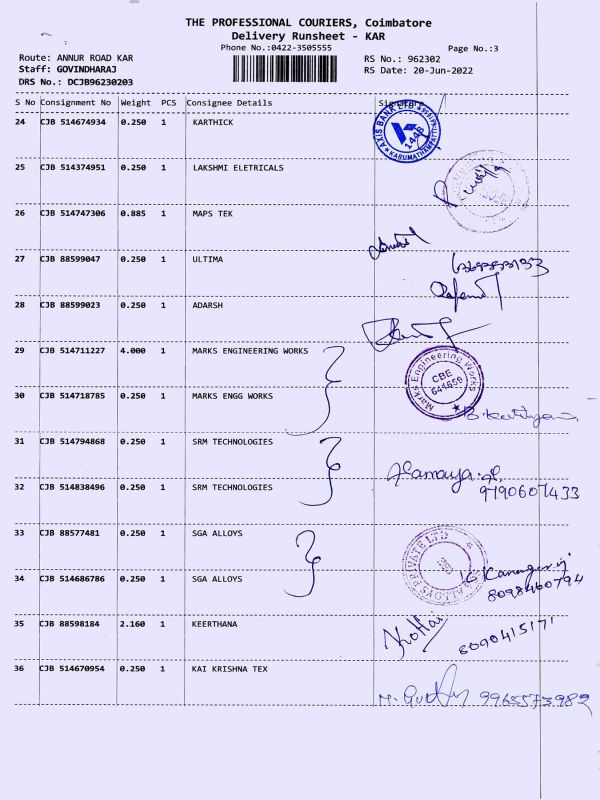 THE PROFESSIONAL COURIERS, Coimbatore
Delivery Runsheet - KAR
Phone No.:0422-3505555
Page No.:3
Route: ANNUR ROAD KAR
RS No.: 962302
Staff: GOVINDHARAJ
RS Date: 20-Jun-2022
DRS No.: DCJB96230203
S No Consignment No Weight PCS Consignee Details Signature
24 CJB 514674934 0.250 1 KARTHICK
AXIS BANK LTD
1448
KARUMATHAMPATTI
25 CJB 514374951 0.250 1 LAKSHMI ELETRICALS
26 CJB 514747306 0.885 1 MAPS TEK
27 CJB 88599047 0.250 1 ULTIMA
28 CJB 88599023 0.250 1 ADARSH
29 CJB 514711227 4.000 1 MARKS ENGINEERING WORKS
Marks Engineering Works
CBE
641659
30 CJB 514718785 0.250 1 MARKS ENGG WORKS
31 CJB 514794868 0.250 1 SRM TECHNOLOGIES
32 CJB 514838496 0.250 1 SRM TECHNOLOGIES
9790607433
33 CJB 88577481 0.250 1 SGA ALLOYS
PRIVATE LTD
34 CJB 514686786 0.250 1 SGA ALLOYS
8098460794
35 CJB 88598184 2.160 1 KEERTHANA
8090415171
36 CJB 514670954 0.250 1 KAI KRISHNA TEX
9965573982